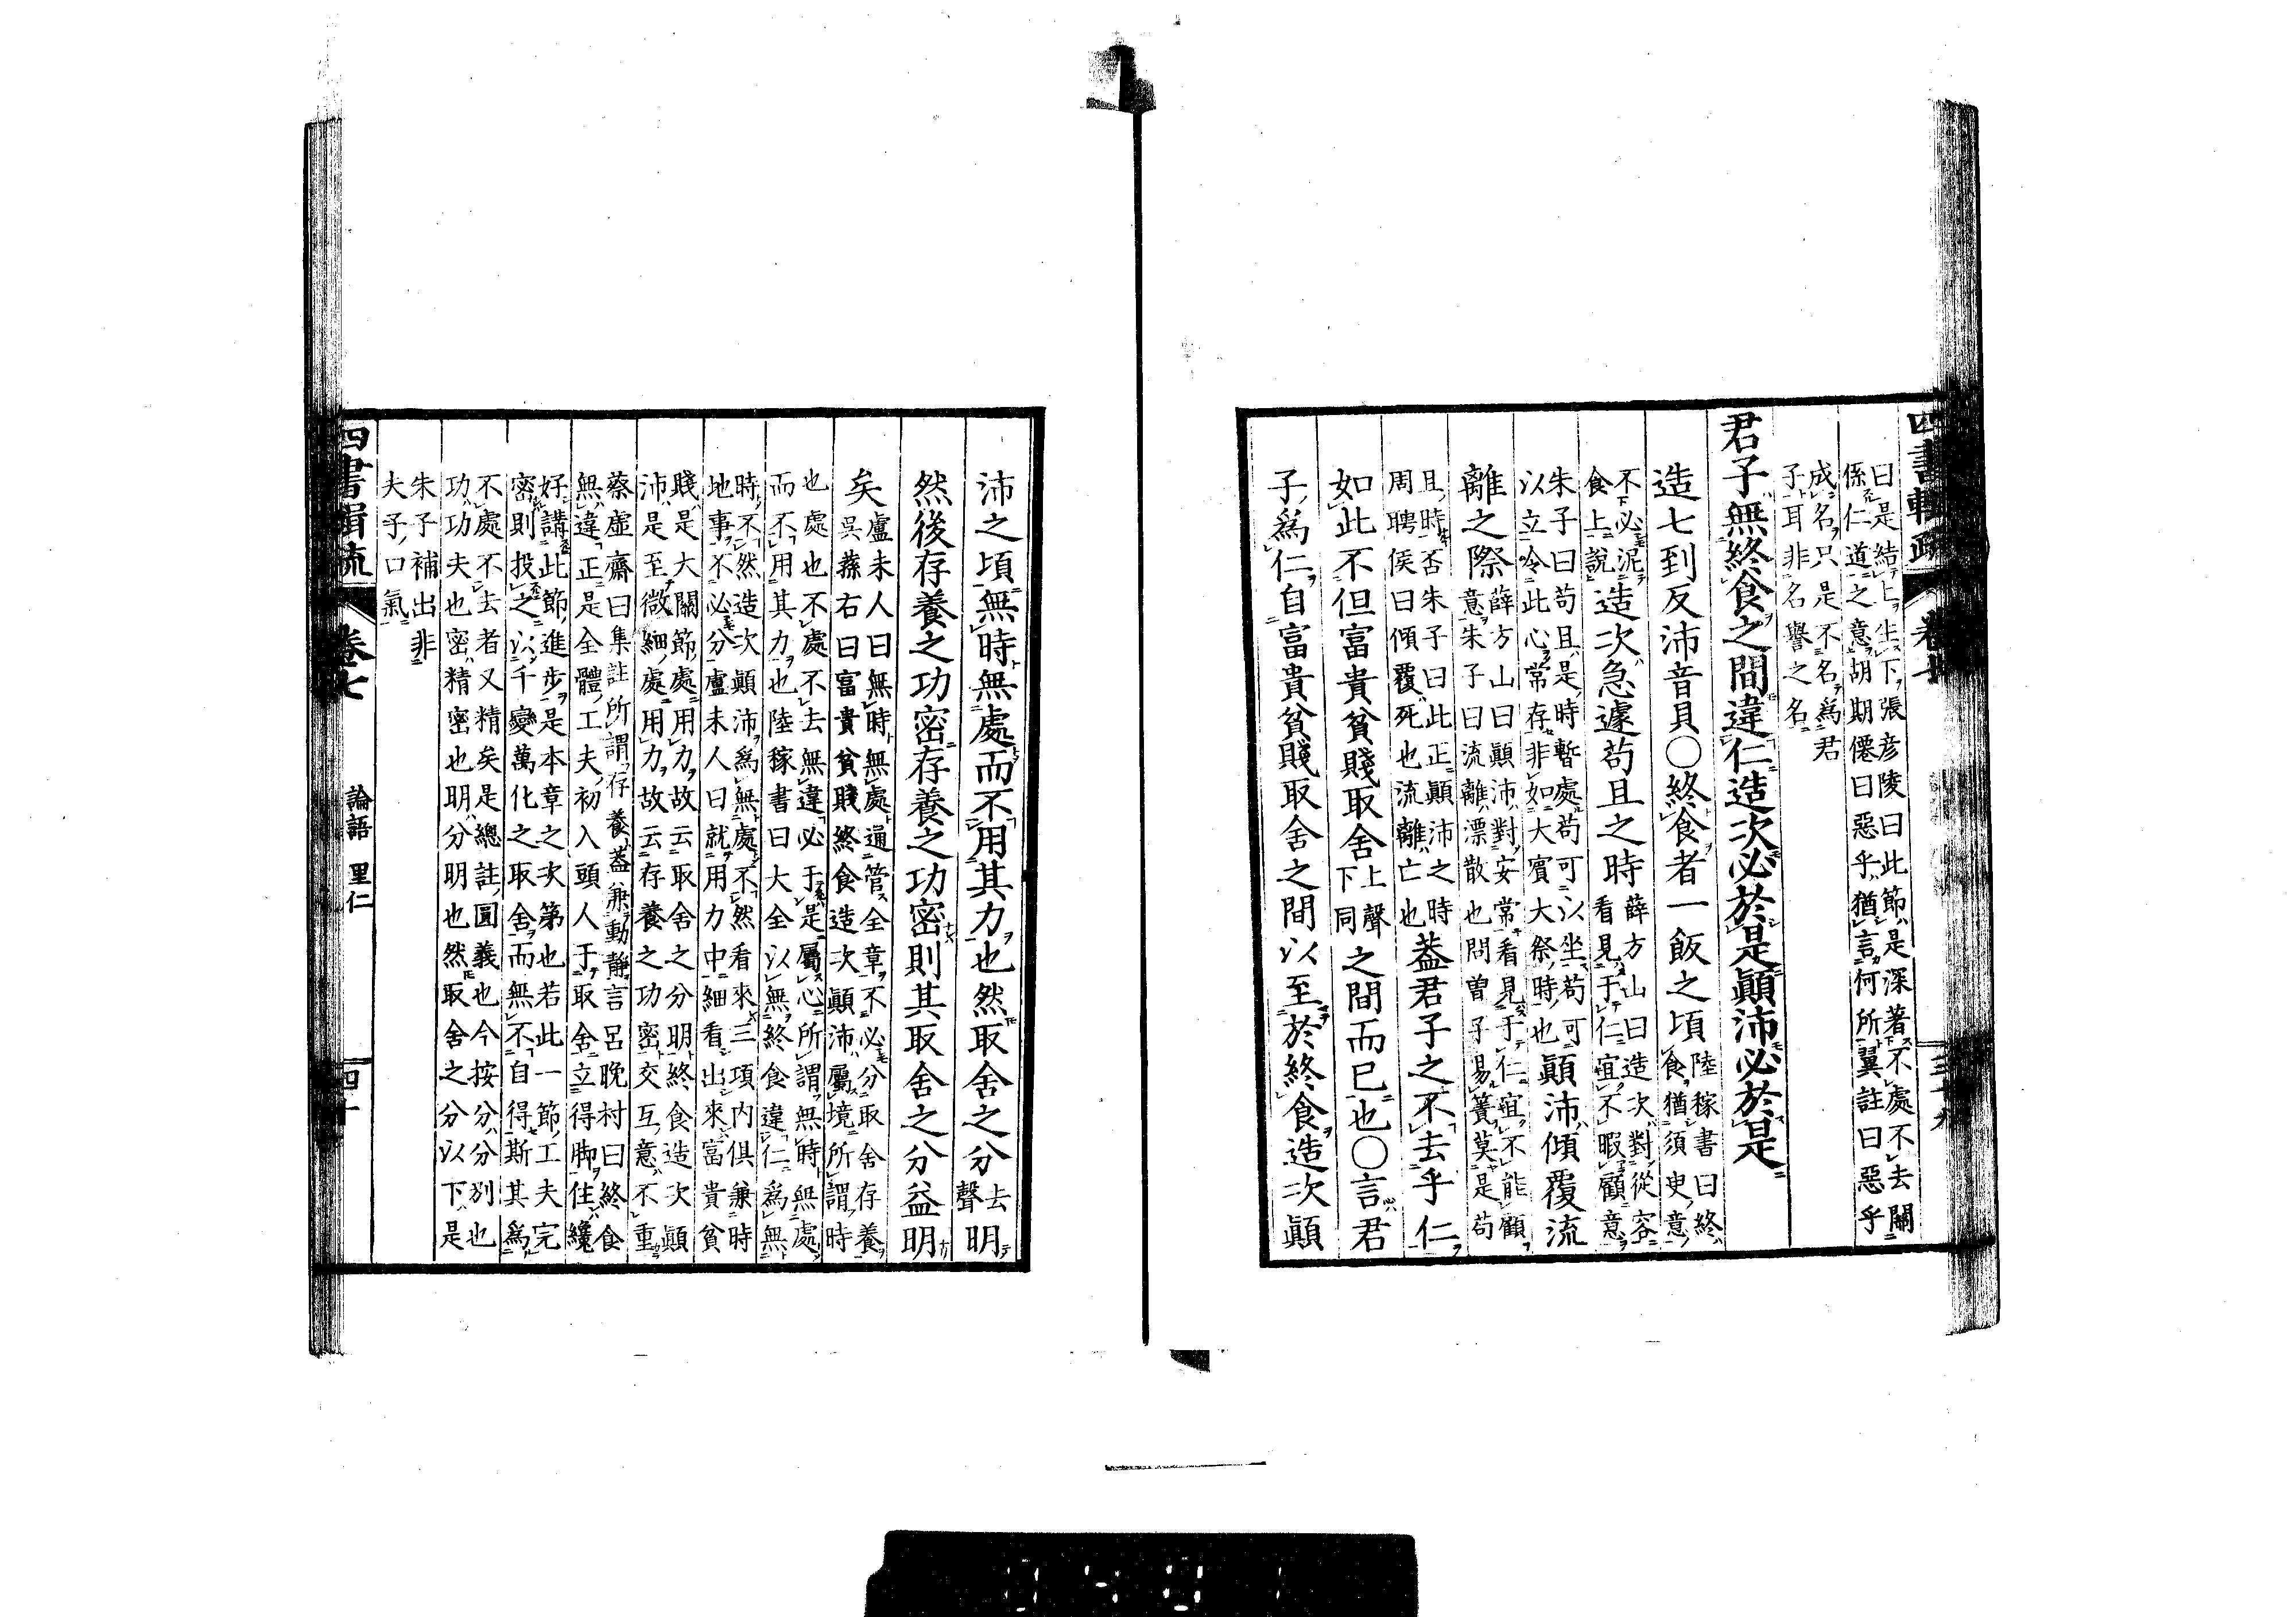 四書輯疏 卷七 三十九
曰是結上生下張彦陵曰此節是深著不處不去關
係仁道之意胡期僊曰惡乎猶言何所翼註曰惡乎
成名只是不名爲君
子耳非名譽之名
君子無終食之間違仁造次必於是顚沛必於是
造七到反沛音貝〇終食者一飯之頃
陸稼書曰終
食猶須史意
不必泥
食上說
造次急遽苟且之時
薛方山曰造次對從容
看見于仁宜不暇顧意
朱子曰苟且是時暫處苟可以坐苟可
以立冷此心常存非如大賓大祭時也
顚沛傾覆流
離之際
薛方山曰顚沛對安常看見于仁宜不能顧
意朱子曰流離漂散也問曽子易簀莫是苟
且時否朱子曰此正顚沛之時
周聘侯曰傾覆死也流離亡也
葢君子之不去乎仁
如此不但富貴貧賤取舍
上聲
下同
之間而已也〇言君
子爲仁自富貴貧賤取舍之間以至於終食造次顚
沛之頃無時無處而不用其力也然取舍之分
去
聲
明
然後存養之功密存養之功密則其取舍之分益明
矣
盧未人曰無時無處通管全章不必分取舍存養
呉蓀右曰富貴貧賤終食造次顚沛屬境所謂時
也處也不處不去無違必于是屬心所謂無時無處
而不用其力也陸稼書曰大全以無終食違仁爲無
時不然造次顚沛爲無處不然看來三項内倶兼時
地事不必分盧未人曰就用力中細看出來富貴貧
賤是大關節處用力故云取舍之分明終食造次顚
沛是至微細處用力故云存養之功密交互意不重
蔡虚齋曰集註所謂存養葢兼動靜言呂晩村曰終食
無違正是全體工夫初入頭人于取舍立得脚住纔
好講此節進歩是本章之次第也若此一節工夫完
密則投之以千變萬化之取舍而無不自得斯其爲
不處不去者又精矣是總註圓義也今按分分別也
功功夫也密精密也明分明也然取舍之分以下是
朱子補出非
夫子口氣
四書輯疏 卷七 論語 里仁 四十